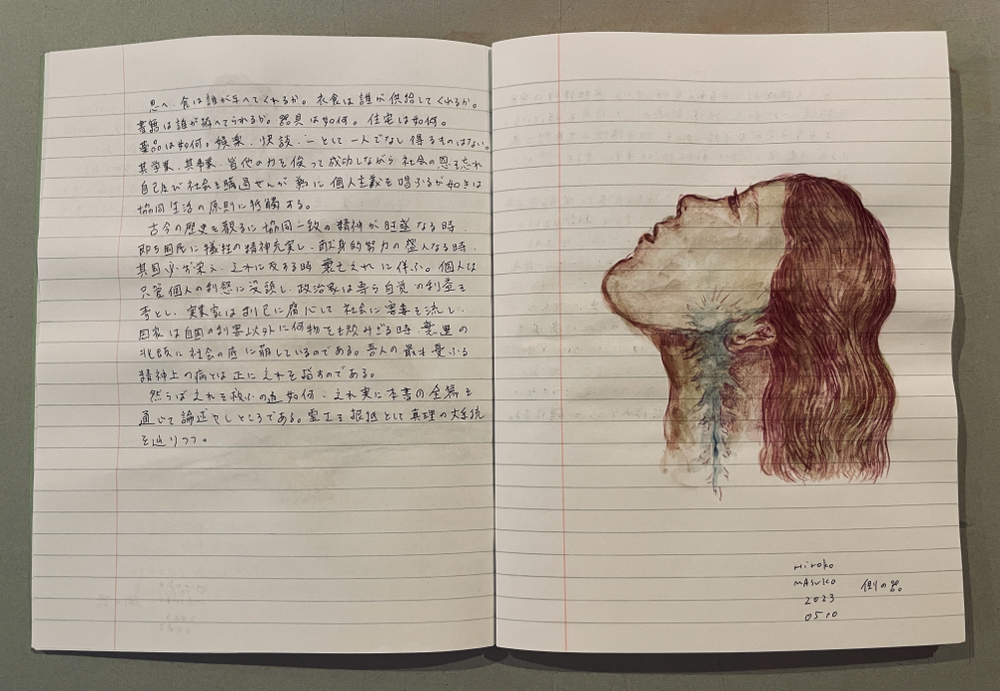 思へ、食は誰が与へてくれるか。衣食は誰が供給してくれるか。
書籍は誰が拵へてられるか。器具は如何。住宅は如何。
薬品は如何。娯楽、快談、一として一人でなし得るものはない。
其学業、其事業、皆他の力を俟って成功しながら社会の恩を忘れ
自己及び社会を瞞過せんが為に個人主義を唱ふるが如きは
協同生活の原則に牴触する。
古今の歴史を観るに協同一致の精神が旺盛なる時、
即ち国民に犠牲の精神充実し、献身的努力の盛んなる時、
其国必ず栄え、之れに反する時衰亡之れに伴ふ。個人は
只管個人の利慾に没頭し、政治家は専ら自党の利益を
事とし、実業家は利己に腐心して社会に害毒を流し、
国家は自国の利害以外に何物でも飲みざる時衰運の
兆既に社会の底に崩しているのである。吾人の最も憂ふる
精神上の病とは正に之れを指すのである。
然らば之れを救ふの途如何、之れ実に本書の全篇を
通じて論述せしところである。霊を根拠として真理の大系統
を辿りつつ。
Hiroko
MASUKO
2023
0510
側の器。